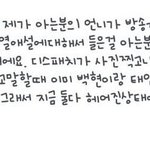 제가 아는분의 언니가 방송
열애설에대해서 들은걸 아는분
에요. 디스패치가 사진찍고
고말할때 이미 백현이랑 태양
그래서 지금 둘다 헤어진상태